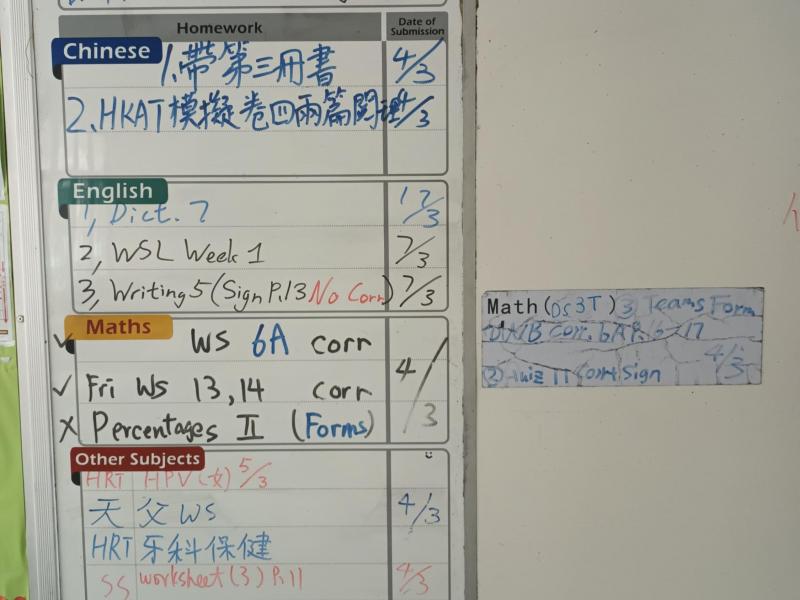 Homework
Date of Submission
Chinese
1. 帶第三冊書 4/3
2. HKAT模擬卷四兩篇閱理 4/3
English
1, Dict. 7 17/3
2, WSL Week 1 7/3
3, Writing 5 (Sign P.13 No Corr) 7/3
Maths
✓ WS 6A corr
✓ Fri WS 13,14 corr 4/3
X Percentages II (Forms)
Other Subjects
HRT HPV(女) 5/3
天父 WS 4/3
HRT 牙科保健
SS worksheet(3) P.11 4/3
Math(DS3T) ③ Teams Form
① W/B corr. 6A P. 17
② Quiz 11 corr Sign 4/3